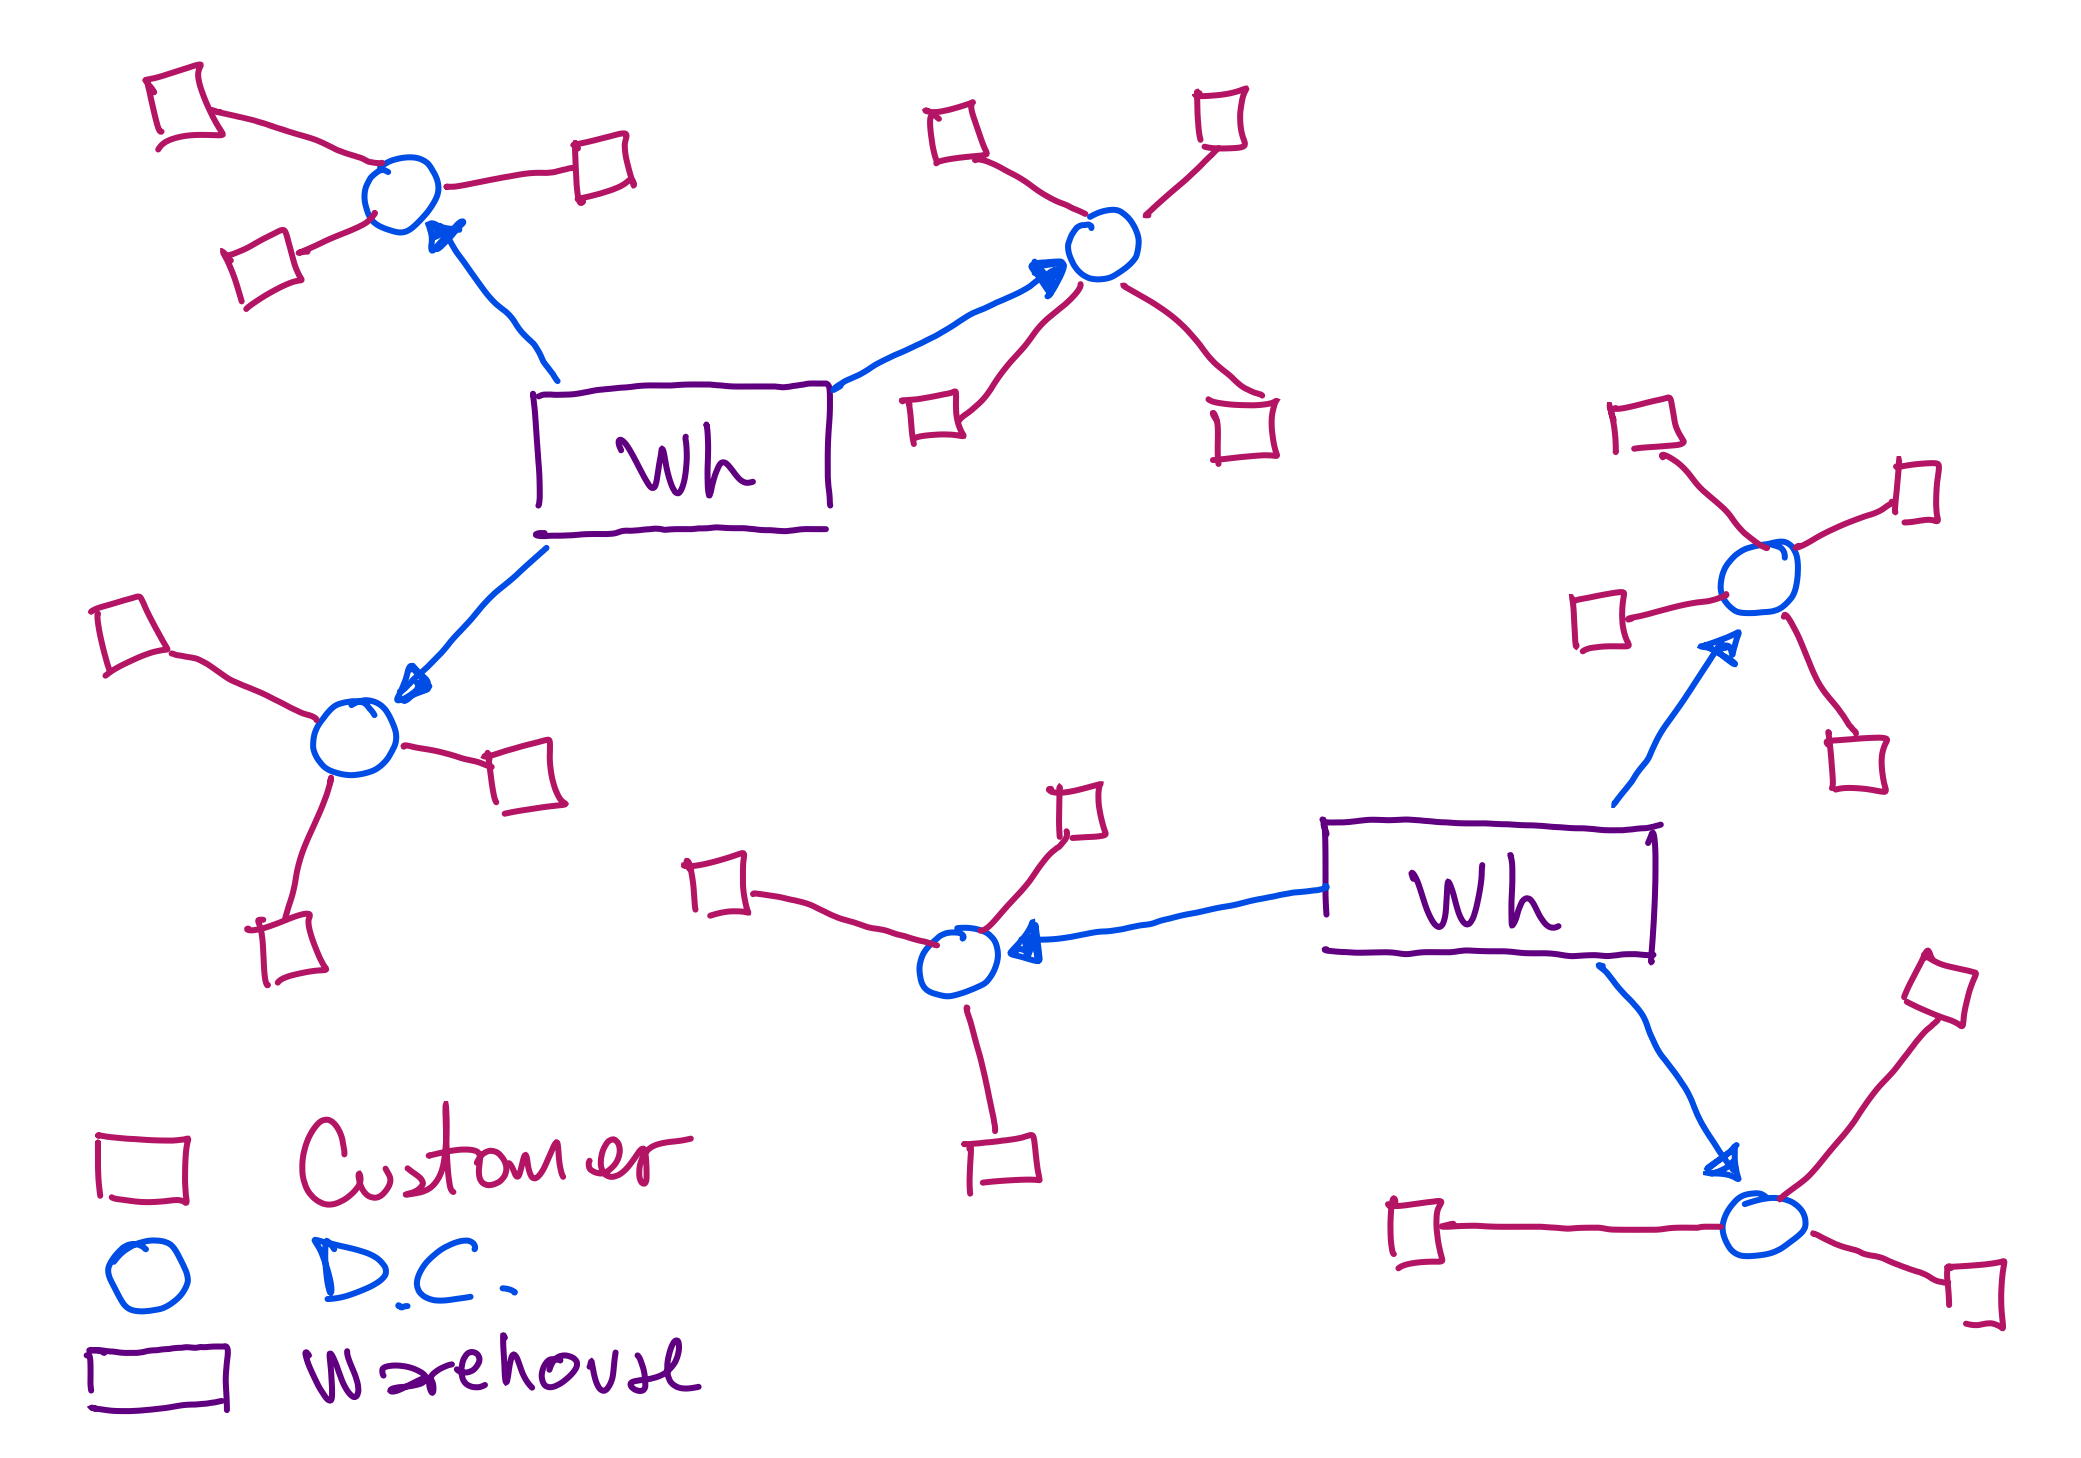 Wh
Wh
Customer
D.C.
Warehouse